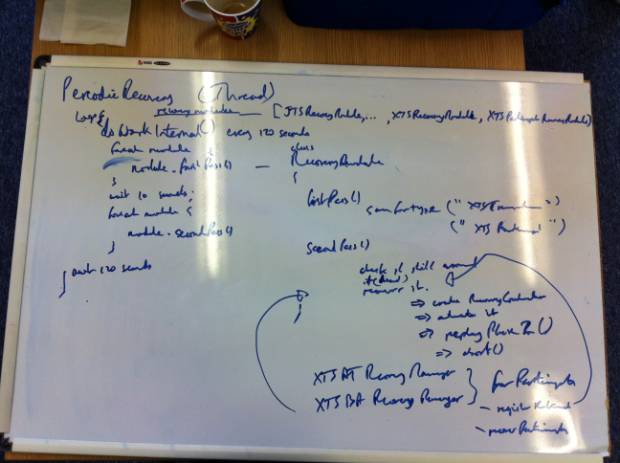 Periodic Recovery (Thread)
recovery modules — [JTSRecoveryModule, ... , XTSRecoveryModule, XTSParticipantRecoveryModule]
Loop {
do Work Internal() every 120 seconds
foreach module {
module.firstPass()
}
wait 10 seconds;
foreach module {
module.secondPass()
}
wait 120 seconds
}
class
— RecoveryModule
{
firstPass()
scan for type ("XTS
("XTS
secondPass()
check if still around
if
recover it.
⇒ create Recovery
⇒ activate it
⇒ replay Phase 2()
⇒ abort()
}
XTS AT Recovery Manager
XTS BA Recovery Manager
} for Participants
– register
– recover Participants